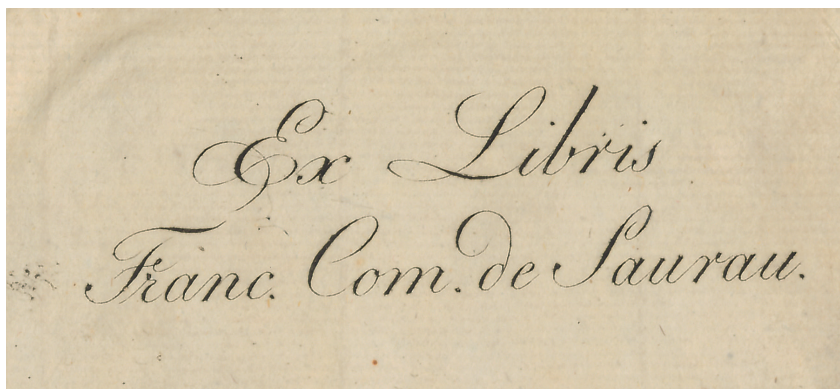 Ex Libris
Franc. Com. de Saurau.